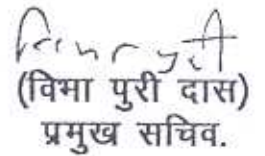 (विभा पुरी दास)
प्रमुख सचिव.